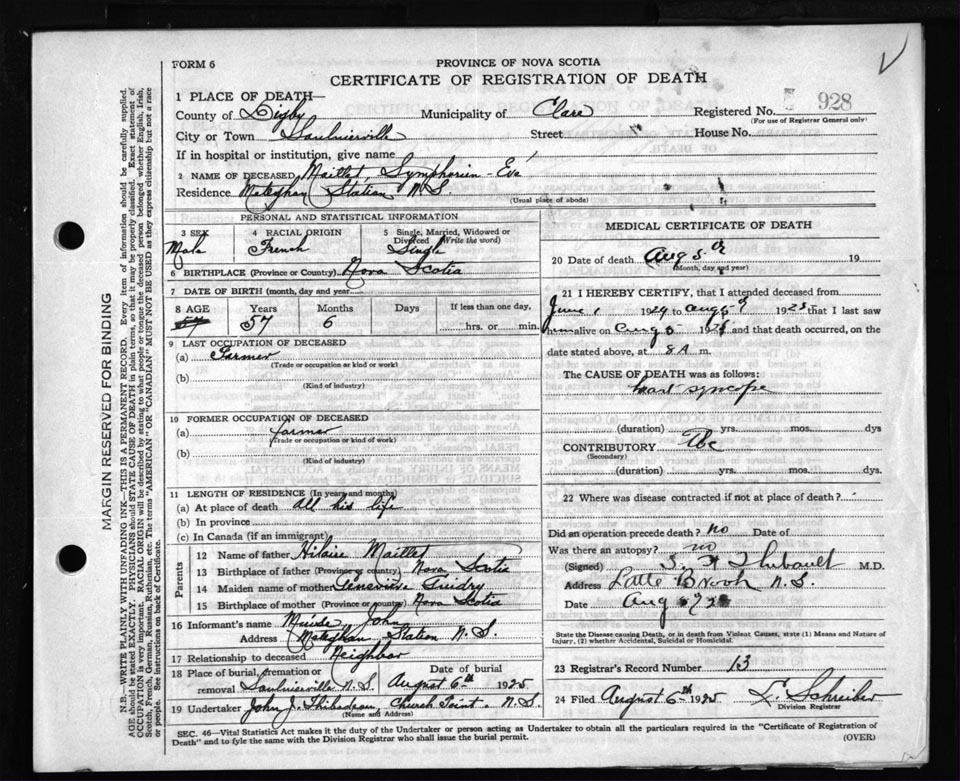 FORM 6
PROVINCE OF NOVA SCOTIA
CERTIFICATE OF REGISTRATION OF DEATH
1 PLACE OF DEATH—
County of Digby Municipality of Clare Registered No. 928
(For use of Registrar General only)
City or Town Saulnierville Street House No.
If in hospital or institution, give name
2 NAME OF DECEASED Maillet, Symphorien - Eve
Residence Meteghan Station N.S.
(Usual place of abode)
PERSONAL AND STATISTICAL INFORMATION
3 SEX Male
4 RACIAL ORIGIN French
5 Single, Married, Widowed or Divorced (Write the word) Single
6 BIRTHPLACE (Province or Country) Nova Scotia
7 DATE OF BIRTH (month, day and year)
8 AGE Years 57 Months 6 Days If less than one day, hrs. or min.
9 LAST OCCUPATION OF DECEASED
(a) Farmer
(Trade or occupation or kind or work)
(b)
(Kind of industry)
10 FORMER OCCUPATION OF DECEASED
(a) farmer
(Trade or occupation or kind of work)
(b)
(Kind of industry)
11 LENGTH OF RESIDENCE (In years and months)
(a) At place of death all his life
(b) In province
(c) In Canada (if an immigrant)
Parents
12 Name of father Hilaire Maillet
13 Birthplace of father (Province or country) Nova Scotia
14 Maiden name of mother Genevieve Guidry
15 Birthplace of mother (Province or country) Nova Scotia
16 Informant's name Muise John
Address Meteghan Station N.S.
17 Relationship to deceased Neighbor
18 Place of burial, cremation or removal Saulnierville N.S. Date of burial August 6th 1925
19 Undertaker John J. Thibodeau, Church Point. N.S.
(Name and Address)
MEDICAL CERTIFICATE OF DEATH
20 Date of death Aug 5 19
(Month, day and year)
21 I HEREBY CERTIFY, that I attended deceased from
June 1 1924 to Aug 5 1925 that I last saw
him alive on Aug 5 1925 and that death occurred, on
date stated above, at 8 A m.
The CAUSE OF DEATH was as follows:
heart syncope
(duration) yrs. mos. dys
CONTRIBUTORY Tbc
(Secondary)
(duration) yrs. mos. dys.
22 Where was disease contracted if not at place of death?
Did an operation precede death? no Date of
Was there an autopsy? no
(Signed) Thibault M.D.
Address Little Brook N.S.
Date Aug
State the Disease causing Death, or in death from Violent Causes, state (1) Means and Nature of
Injury, (2) whether Accidental, Suicidal or Homicidal.
23 Registrar's Record Number 13
24 Filed August 6th 1925 Schreiber
Division Registrar
SEC. 46—Vital Statistics Act makes it the duty of the Undertaker or person acting as Undertaker to obtain all the particulars required in the "Certificate of Registration of
Death" and to fyle the same with the Division Registrar who shall issue the burial permit. (OVER)
MARGIN RESERVED FOR BINDING
N.B.—WRITE PLAINLY WITH UNFADING INK—THIS IS A PERMANENT RECORD. Every item of information should be carefully supplied.
AGE should be stated EXACTLY. PHYSICIANS should STATE CAUSE OF DEATH in plain terms, so that it may be properly classified. Exact statement of
OCCUPATION is very important. RACIAL ORIGIN will be described by stating to what people or tongue the deceased person belonged whether English, Irish,
Scotch, French, German, Russian, Ruthenian, etc. The terms "AMERICAN" OR "CANADIAN" MUST NOT BE USED as they express citizenship but not a race
or people. See instructions on back of Certificate.